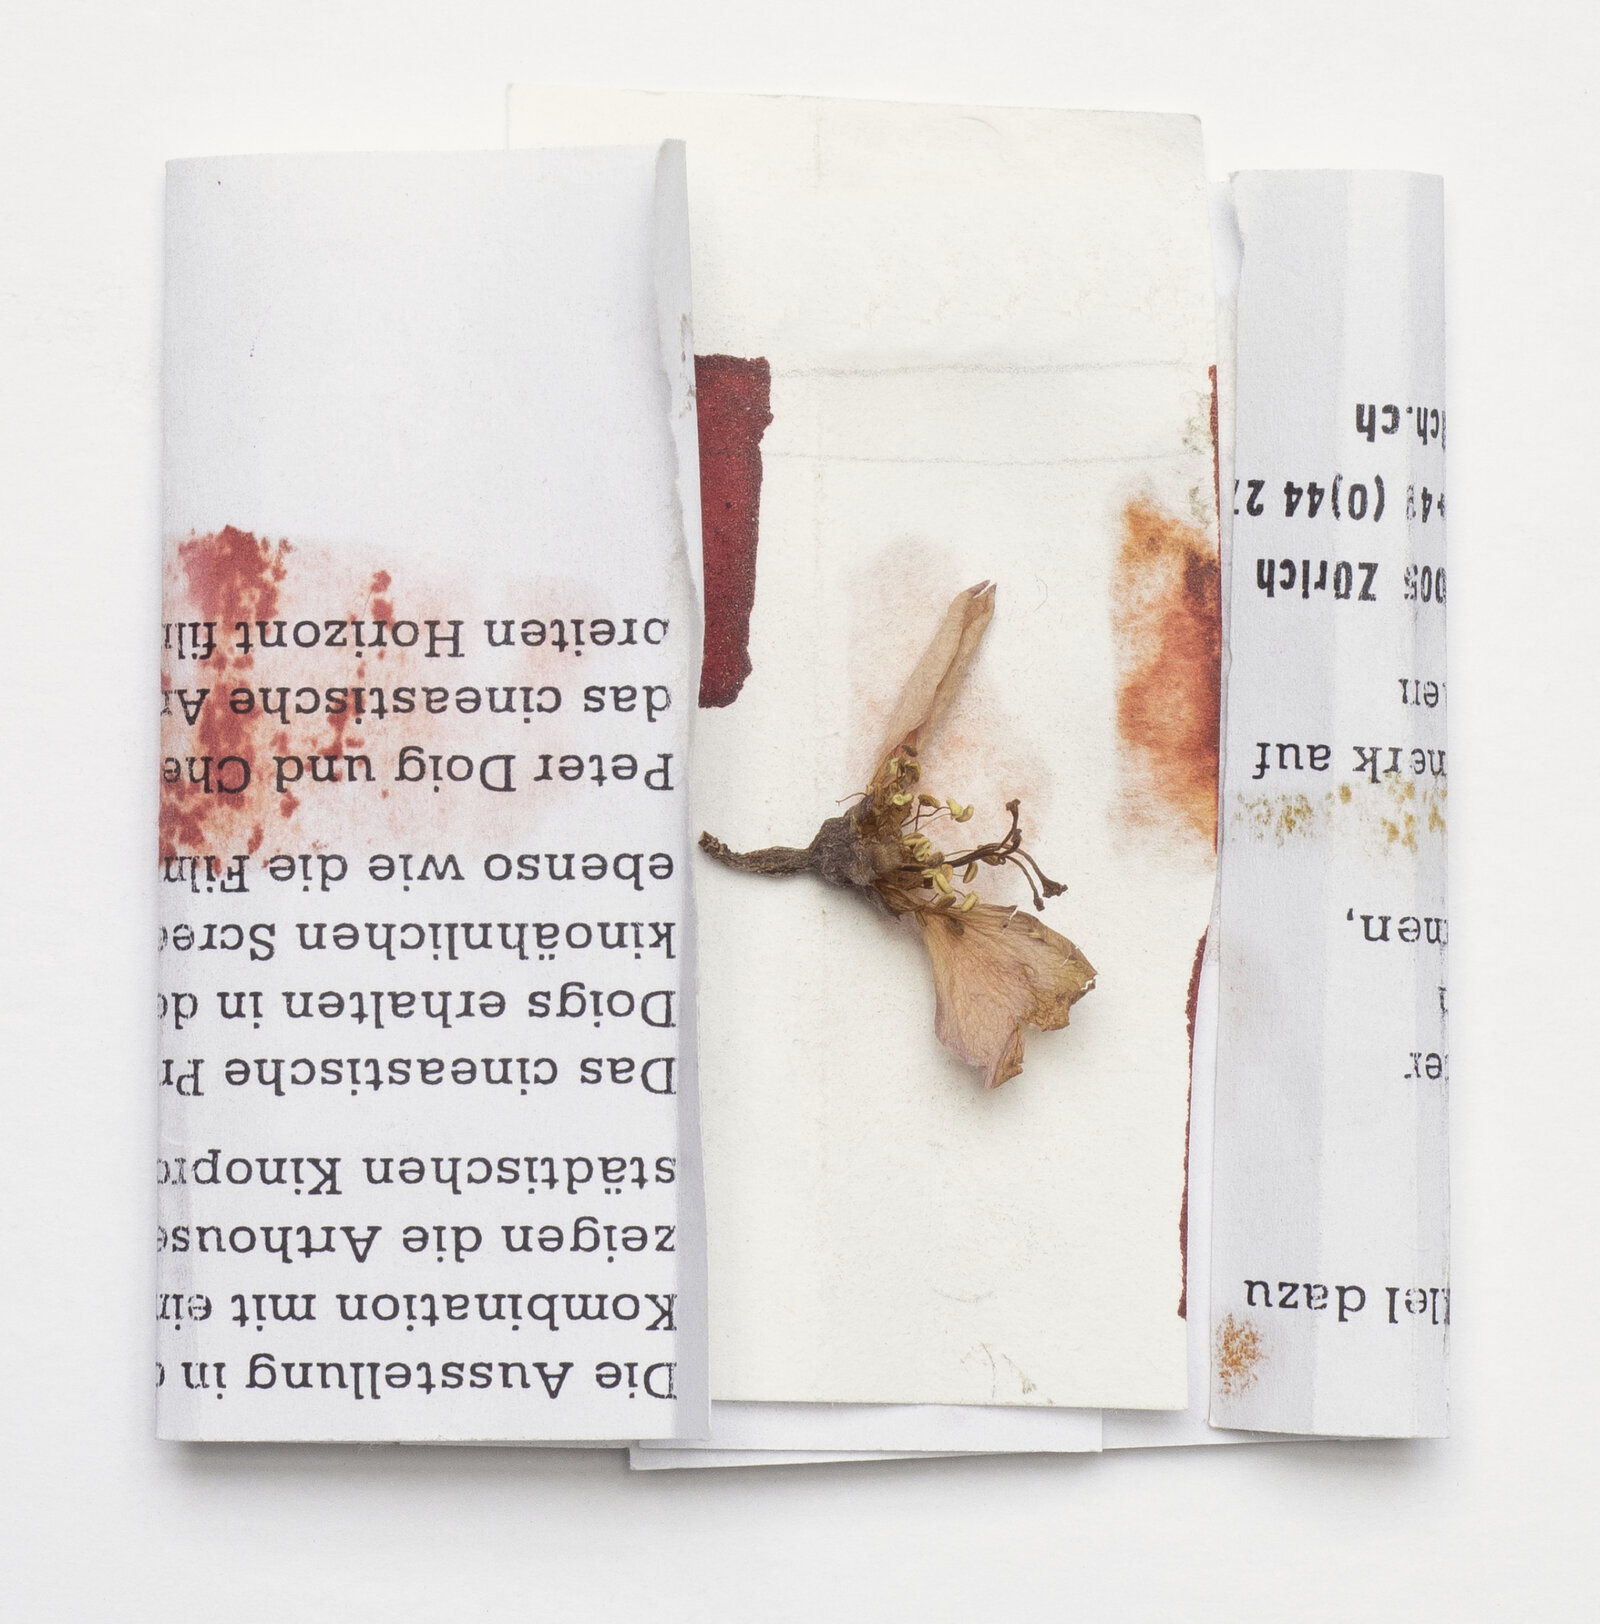 Die Ausstellung in
Kombination mit ein
zeigen die Arthouse
städtischen Kinopro
Das cineastische Pr
Doigs erhalten in de
kinoähnlichen Scree
ebenso wie die Film
Peter Doig und Che
das cineastische Ar
breiten Horizont fil
llel dazu
er
nen,
merk auf
en
005 Zürich
(0)44 27
ch.ch